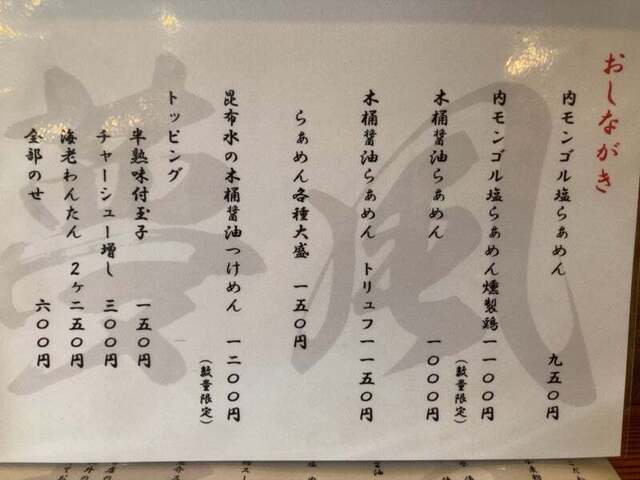 おしながき
内モンゴル塩らぁめん 九五〇円
内モンゴル塩らぁめん燻製鶏 一一〇〇円
(数量限定)
木桶醤油らぁめん 一〇〇〇円
木桶醤油らぁめん トリュフ 一一五〇円
らぁめん各種大盛 一五〇円
昆布水の木桶醤油つけめん 一二〇〇円
(数量限定)
トッピング
半熟味付玉子 一五〇円
チャーシュー増し 三〇〇円
海老わんたん 2ヶ 二五〇円
全部のせ 六〇〇円